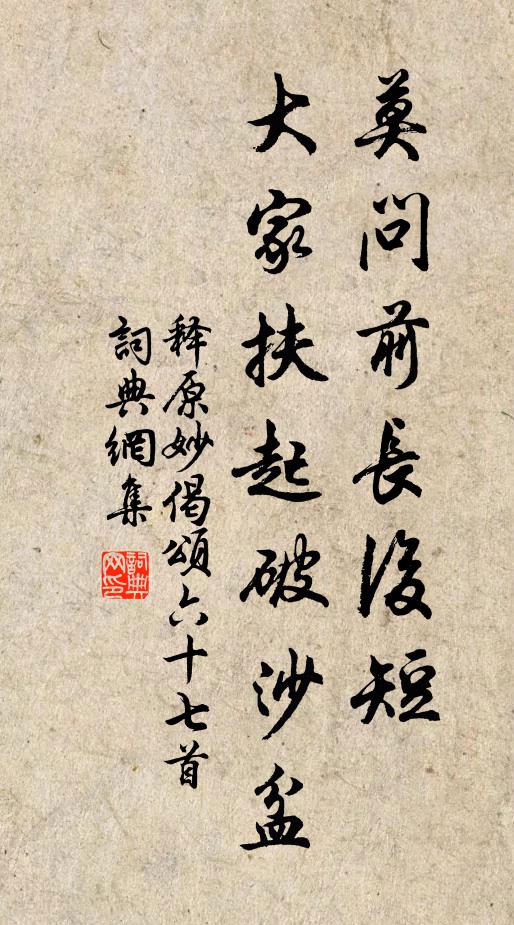 莫問前長後短
大家扶起破沙盆
释原妙偈頌六十七首
詞典網集
詞典
网印